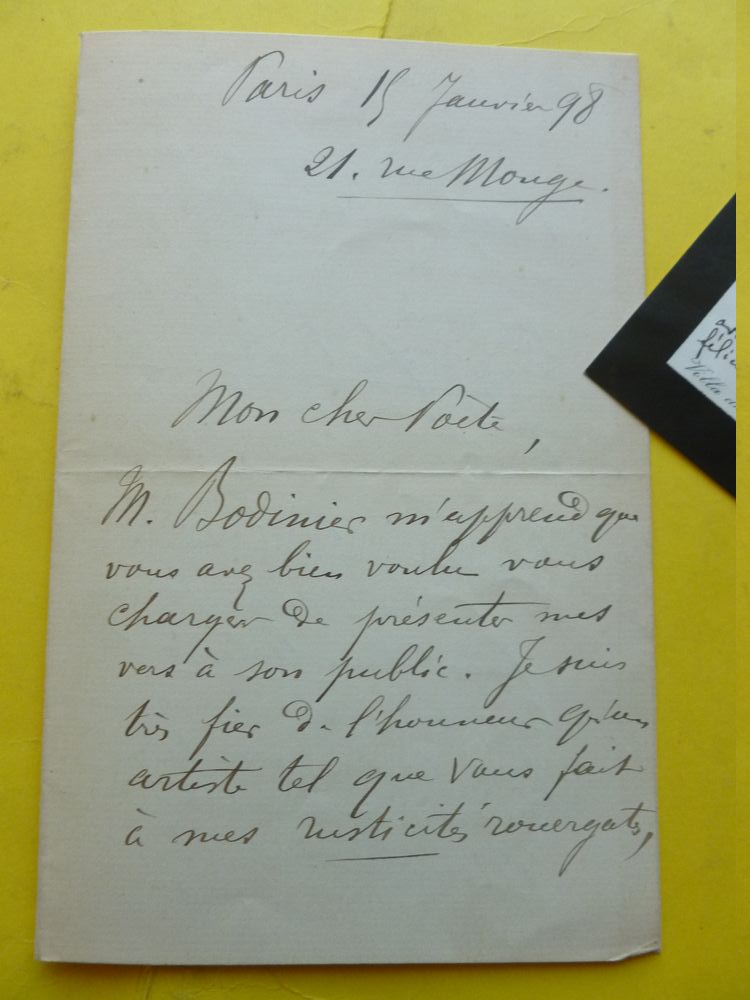 Paris 15 Janvier 98
21. rue Monge.
Mon cher Poète,
M. Bodinier m'apprend que
vous avez bien voulu vous
charger de présenter mes
vers à son public. Je suis
très fier de l'honneur qu'un
artiste tel que Vous fait
à mes rusticités rouergates,
Villa